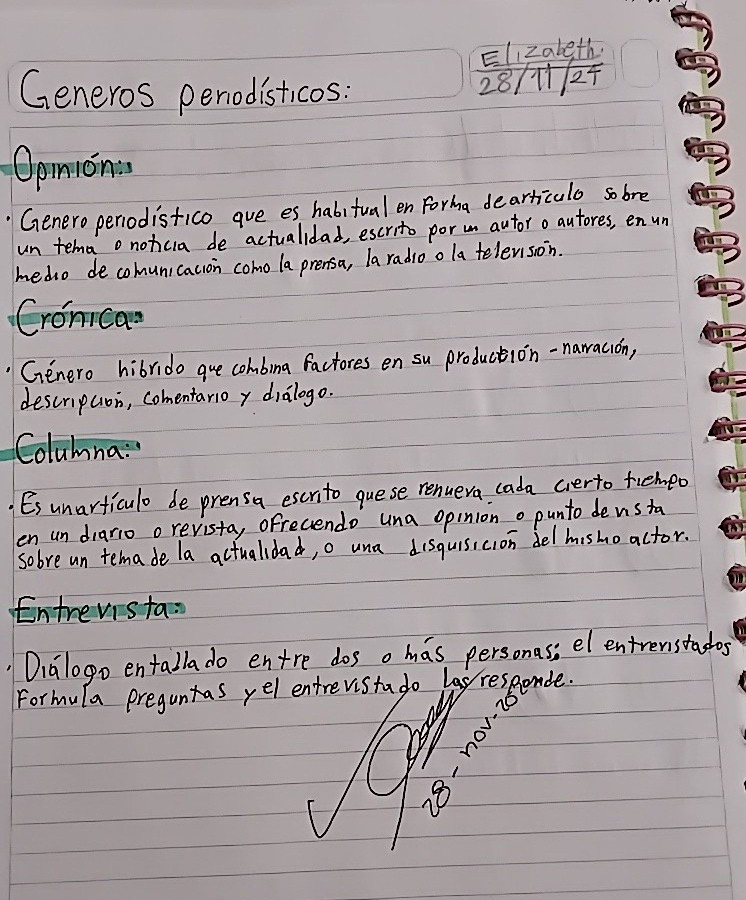 Elizabeth.
28/11/24
Generos periodísticos:
Opinión:
· Genero periodístico que es habitual en forma de artículo sobre
un tema o noticia de actualidad, escrito por un autor o autores, en un
medio de comunicación como la prensa, la radio o la televisión.
Crónica:
· Género hibrido que combina factores en su producción - narración,
descripción, comentario y diálogo.
Columna:
· Es un artículo de prensa escrito que se renueva cada cierto tiempo
en un diario o revista, ofreciendo una opinion o punto de vista
sobre un tema de la actualidad, o una disquisición del mismo actor.
Entrevista:
· Diálogo entallado entre dos o más personas: el entrevistados
formula preguntas y el entrevistado las responde.
28-nov.